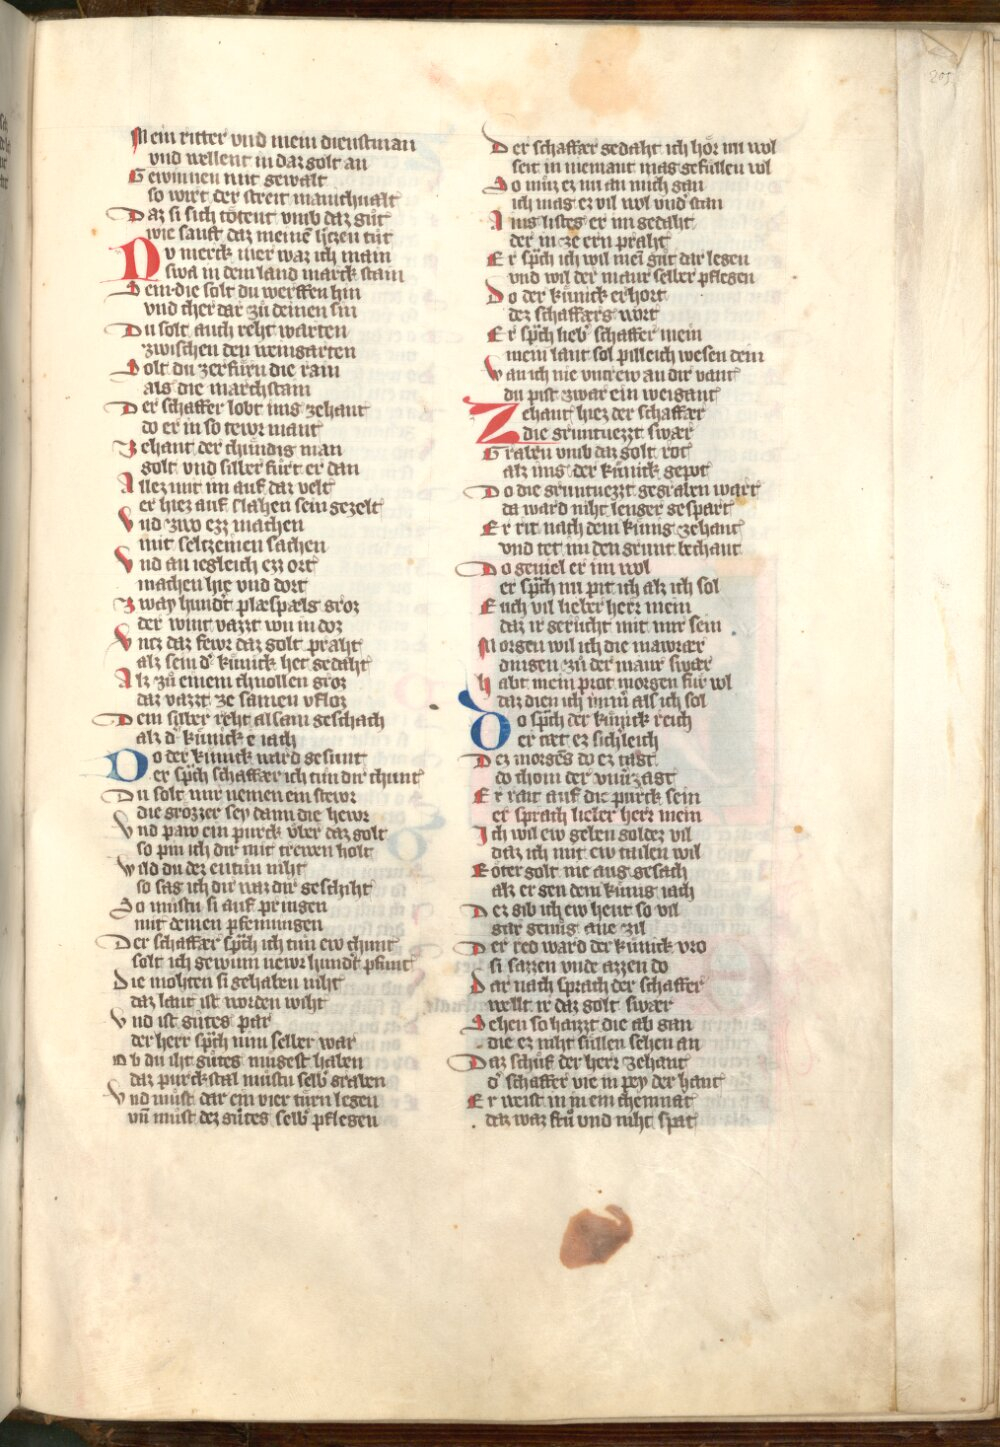 205
Mein ritter vnd mein dienstman
vnd wellent in daz golt an
Gewinnen mit gewalt
so wirt der streit manichualt
Daz si sich tötent vmb daz gůt
wie sanft daz meinē hertzen tůt
Nv merck mer waz ich main
swa in dem land marck stain
Sein die solt du werffen hin
vnd cher dar zů deinen sin
Du solt auch reht warten
zwischen den weingarten
Solt du zerfůrn die rain
als die marchstain
Der schaffer lobt ims zehant
do er in so tewr mant
Zehant der chündig man
golt vnd silber fůrt er dan
Allez mit im auf daz velt
er hiez auf slahen sein gezelt
Vnd zwo ezz machen
mit seltzemen sachen
Vnd an iegleich ezz ort
machen hie vnd dort
Zway hundt plaspælg groz
der wint vazzt wn in doz
Vntz daz fewr daz golt praht
alz sein d kůnick het gedaht
Alz zů einem chnollen groz
daz vazzt ze samen vloz
Dem silber reht alsam geschach
alz d kůnick e iach
Do der kůnick ward gesunt
er spch schaffær ich tůn dir chunt
Du solt mir nemen ein stewr
die grözzer sey dann die hewr
Vnd paw ein purck vber daz golt
so pin ich dir mit trewen holt
Wild du dez entůn niht
so sag ich dir waz dir geschiht
So můstu si auf pringen
mit deinen pfenningen
Der schaffær spch ich tůn ew chunt
solt ich gewinn newr hundt pfunt
Die möhten si gehaben niht
daz lant ist worden wiht
Vnd ist gůtes par
der herr spch nim selber war
Ob du iht gůtes mugest haben
daz purckstal můstu selb graben
Vnd můst dar ein vier tůrn legen
vn můst dez gůtes selb pflegen
Der schaffær gedaht ich hör nu wol
seit in niemant mag gefüllen vol
So můz ez nu an mich gan
ich mag ez vil wol vnd stan
Ains listes er im gedaht
der in ze ern praht
Er spch ich wil mei gůt dar legen
vnd wil der maur selber pflegen
Do der kůnick erhort
dez schaffærs wort
Er spch lieb schaffer mein
mein lant sol pilleich wesen dein
Wan ich nie vntrew an dir vant
du pist zwar ein weigant
Zehant hiez der schaffær
die gruntuezzt swær
Graben vmb daz golt rot
alz ims der kůnick gepot
Do die gruntuezzt gegraben wart
da ward niht lenger gespart
Er rit nach dem kůnig zehant
vnd tet im den grunt bechant
Do geuiel er im wol
er spch nu pit ich alz ich sol
Euch vil lieber herr mein
daz ir gerůcht mit mir sein
Morgen wil ich die mawrær
dingen zů der maur swær
Habt mein prot morgen für wol
daz dien ich immer als ich sol
Do spch der kůnick reich
er tæt ez sichleich
Dez morgens do ez tagt
do chom der vnuerzagt
Er rait auf die purck sein
er sprach lieber herr mein
Ich wil ew geben goldez vil
daz ich mit ew tailen wil
Röter golt nie aug gesach
alz er gen dem kůnig iach
Dez gib ich ew hewt so vil
gar genůg ane zil
Der red ward der kůnick vro
si sazzen vnde azzen do
Dar nach sprach der schaffer
wellt ir daz golt swær
Sehen so haizzt die ab gan
die ez niht süllen sehen an
Daz schůf der herr zehant
d schaffer vie in pey der hant
Er weist in in ein chemnat
daz waz frů vnd niht spat